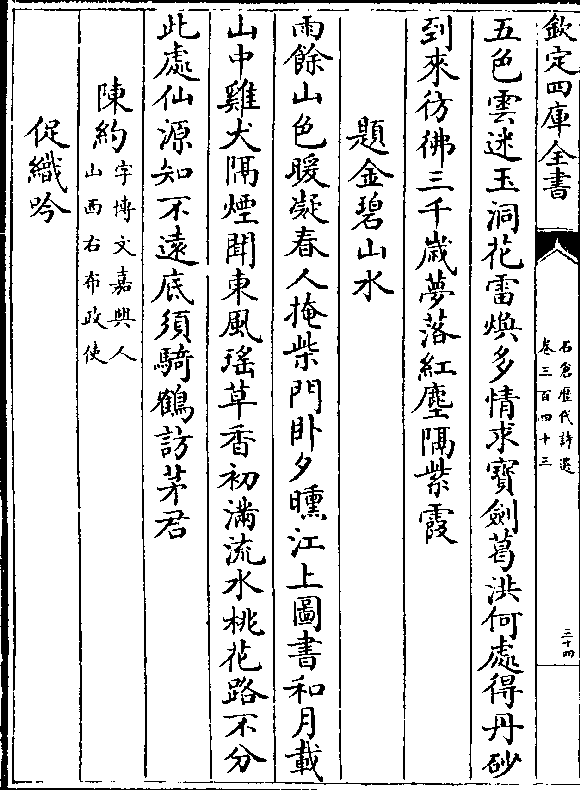 欽定四庫全書
石倉歷代詩選
卷三百四十三
三十四
五色雲迷玉洞花雷煥多情求寶劍葛洪何處得丹砂
到來彷彿三千歲夢落紅塵隔紫霞
題金碧山水
雨餘山色暖凝春人掩柴門卧夕曛江上圖書和月載
山中雞犬隔煙聞東風瑤草香初滿流水桃花路不分
此處仙源知不遠底須騎鶴訪茅君
陳約
字博文嘉興人
山西右布政使
促織吟